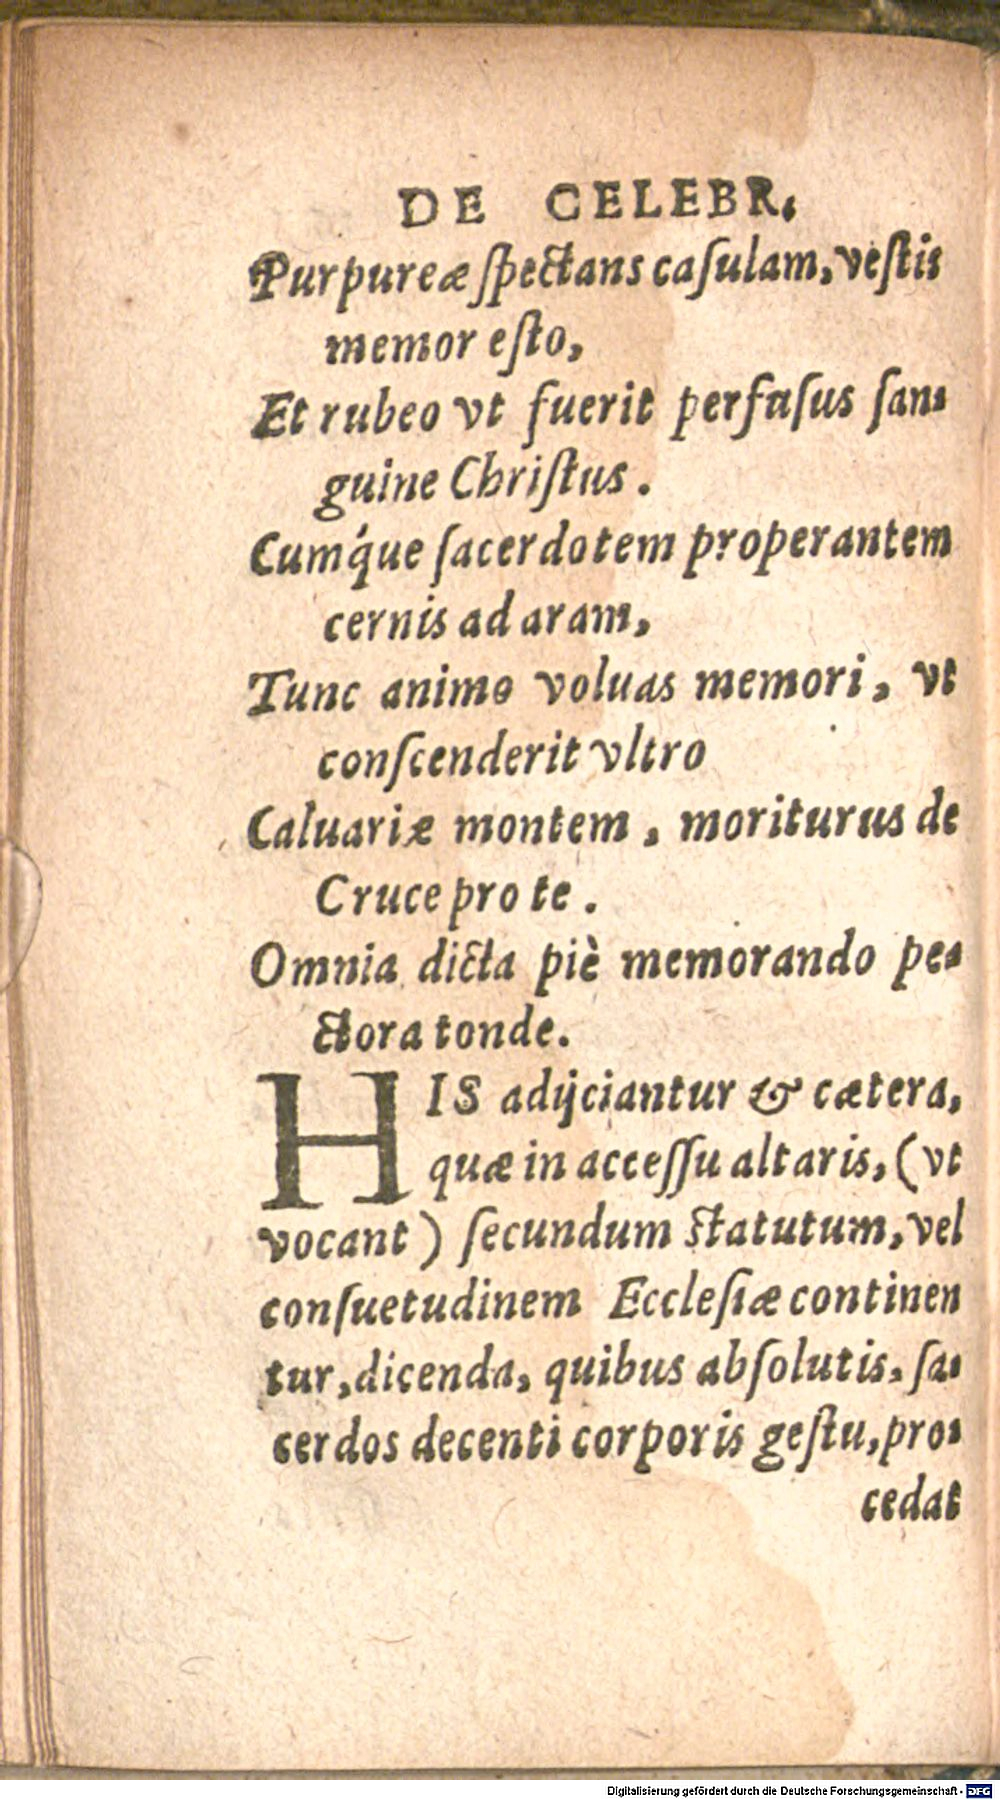 DE CELEBR.
Purpureæ ſpectans caſulam, veſtis
memor eſto,
Et rubeo vt fuerit perfuſus ſan-
guine Chriſtus.
Cumq́ue ſacerdotem properantem
cernis ad aram,
Tunc animo voluas memori, vt
conſcenderit vltro
Caluariæ montem, moriturus de
Cruce pro te.
Omnia dicta piè memorando pe-
ctora tonde.
HIS adijciantur & cætera,
quæ in acceſſu altaris, (vt
vocant) ſecundum ſtatutum, vel
conſuetudinem Eccleſiæ continen
tur, dicenda, quibus abſolutis, ſa-
cerdos decenti corporis geſtu, pro-
cedat
Digitalisierung gefördert durch die Deutsche Forschungsgemeinschaft - DFG